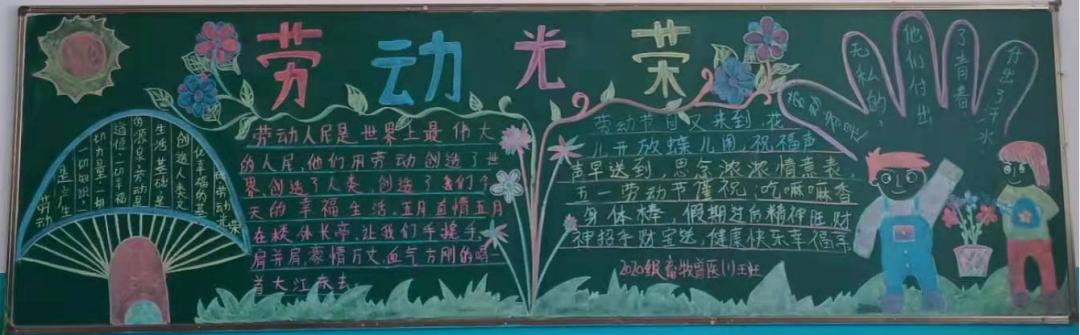 劳动光荣
劳动人民是世界上最伟大
的人民,他们用劳动创造了世
界,创造了人类,创造了我们今
天的幸福生活。五月直情五月
在楼休长亭,让我们手挽手,
肩并肩豪情万丈,血气方刚的唱一
首大江东去。
劳动节日又来到,花
儿开放蝶儿闹,祝福声
声早送到,思念浓浓情意表,
五一劳动节僅祝:吃嘛嘛香
身体棒,假期过后精神旺,财
神招手财宝送,健康快乐幸福享
2020级畜牧兽医(1)王
无私的
他们付出
了青春
付出了汗水
劳动
是产生
一切知识
动力是一切
道德,一切幸福
的源泉,劳动是
生活基础,是
创造人类文
化幸福的基